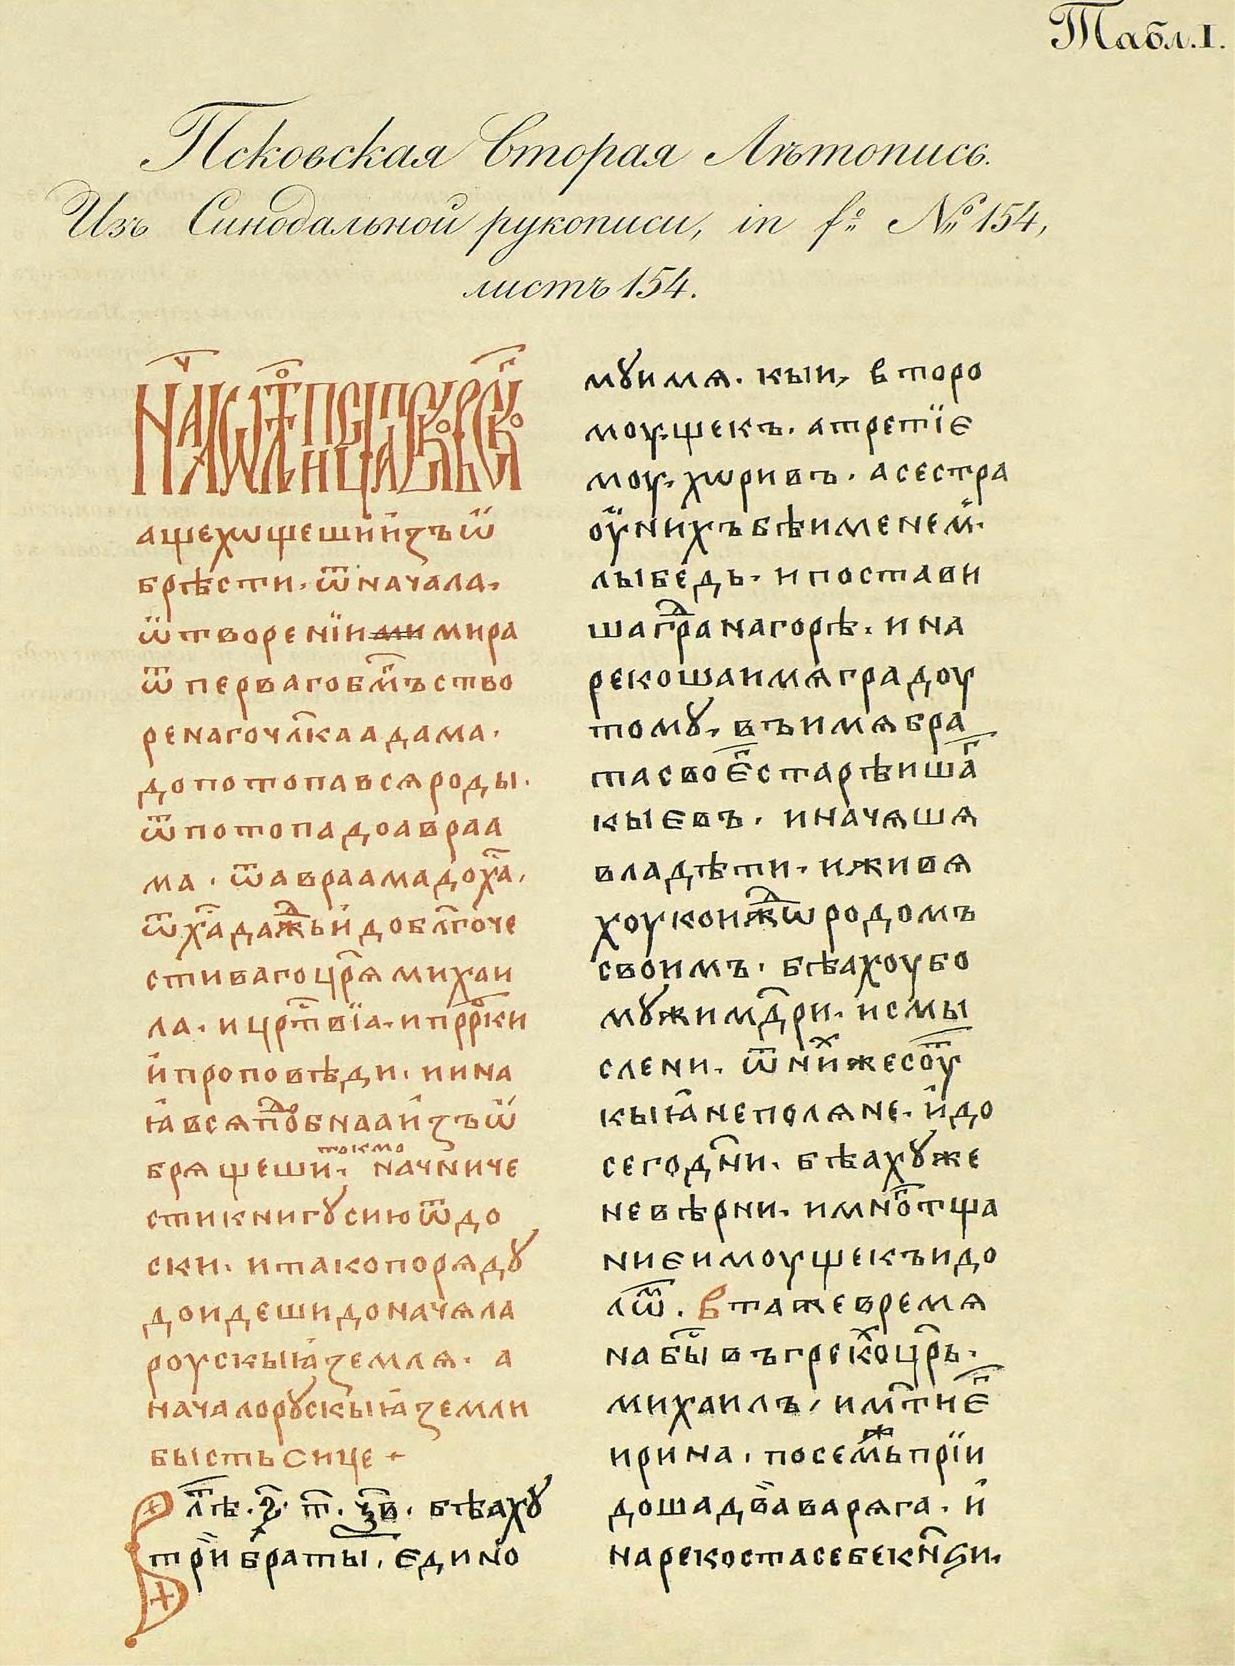 Табл. I.
Псковская вторая Лѣтопись.
Изъ Синодальной рукописи, in fº № 154,
листъ 154.
ащехѡщешии҆зъѡ
брѣсти. ѿначала.
ѡтворенїимимира
ѿ перваго бг҃мъство
ренагочл҃каадама.
допотопавсяроды.
ѿпотопадоавраа
ма. ѿавраамадох҃а,
ѿх҃адажⷣьи҆добл҃гоче
стивагоцр҃ямихаи
ла. и црⷭ҇твїа. и прр҃ки
и҆проповѣди. иина
ꙗ҆всяпⷣобнааи҆зъѡ
токмо
брящеши. начн҃иче
стикнигꙋсиюѿдо
ски. итакопорядꙋ
доидешидоначяла
роускыꙗ҆земля. а
началорꙋскыꙗ҆земли
бысть сице +
Влⷮѣ. ҂ѕ҃. т҃. ч҃в. бѣахꙋ
трїи братⷶы, єдино
мꙋимя. кыи, второ
моу.щекъ. атретїє
моу. хѡривъ. асестра
оу҆нихъбѣименемъ.
лыбедь. ипостави
шаграⷣнагорѣ. ина
рекошаимяградоу
томꙋ. въимябра
тасвоеⷢ҇старѣишаⷢ҇
кыєвъ. иначяшя
владѣти. иживя
хоукоижⷣѡродомъ
своимъ. бѣахоубо
мꙋжимⷣри. исмы
слени. ѿниⷯжесоуⷮ
кыꙗ҆неполяне. и҆до
сегоднⷭ҇и. бѣахꙋже
невѣрни. имноⷢ҇тща
ниєимоущекъидо
лѿ. втажевремя
набы҃въгрекоⷯцр҃ь.
михаилъ, имт҃иєⷢ҇
ирина. посемⷤьпрїи
дошадвⷶаваряга. и҆
нарекостасебекн҃ѕи.